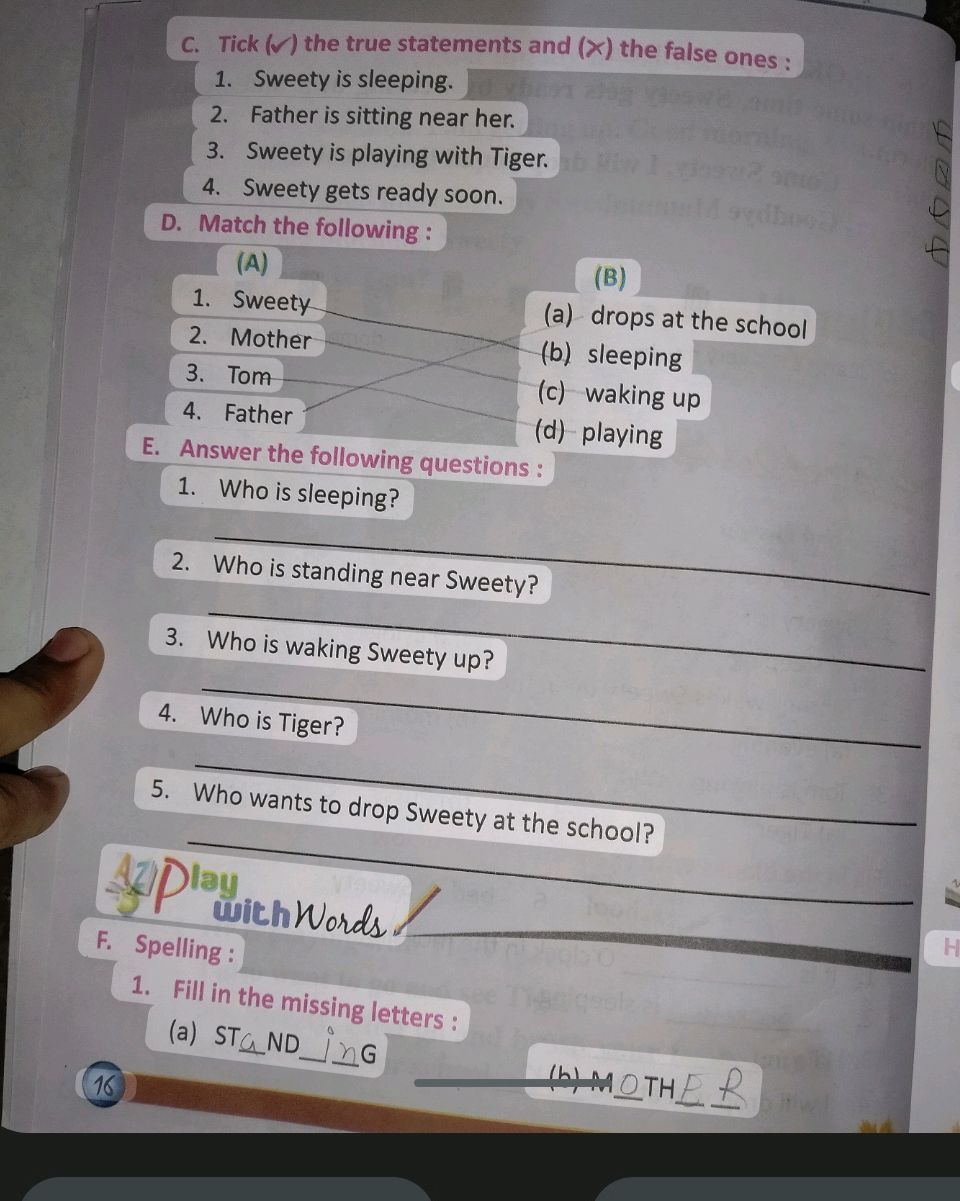 C. Tick (✓) the true statements and (✗) the false ones :
1. Sweety is sleeping.
2. Father is sitting near her.
3. Sweety is playing with Tiger.
4. Sweety gets ready soon.
D. Match the following :
(A) (B)
1. Sweety (a) drops at the school
2. Mother (b) sleeping
3. Tom (c) waking up
4. Father (d) playing
E. Answer the following questions :
1. Who is sleeping?
2. Who is standing near Sweety?
3. Who is waking Sweety up?
4. Who is Tiger?
5. Who wants to drop Sweety at the school?
AZ Play
with Words
F. Spelling :
H
1. Fill in the missing letters :
(a) STaNDinG
(b) MOTHER
16